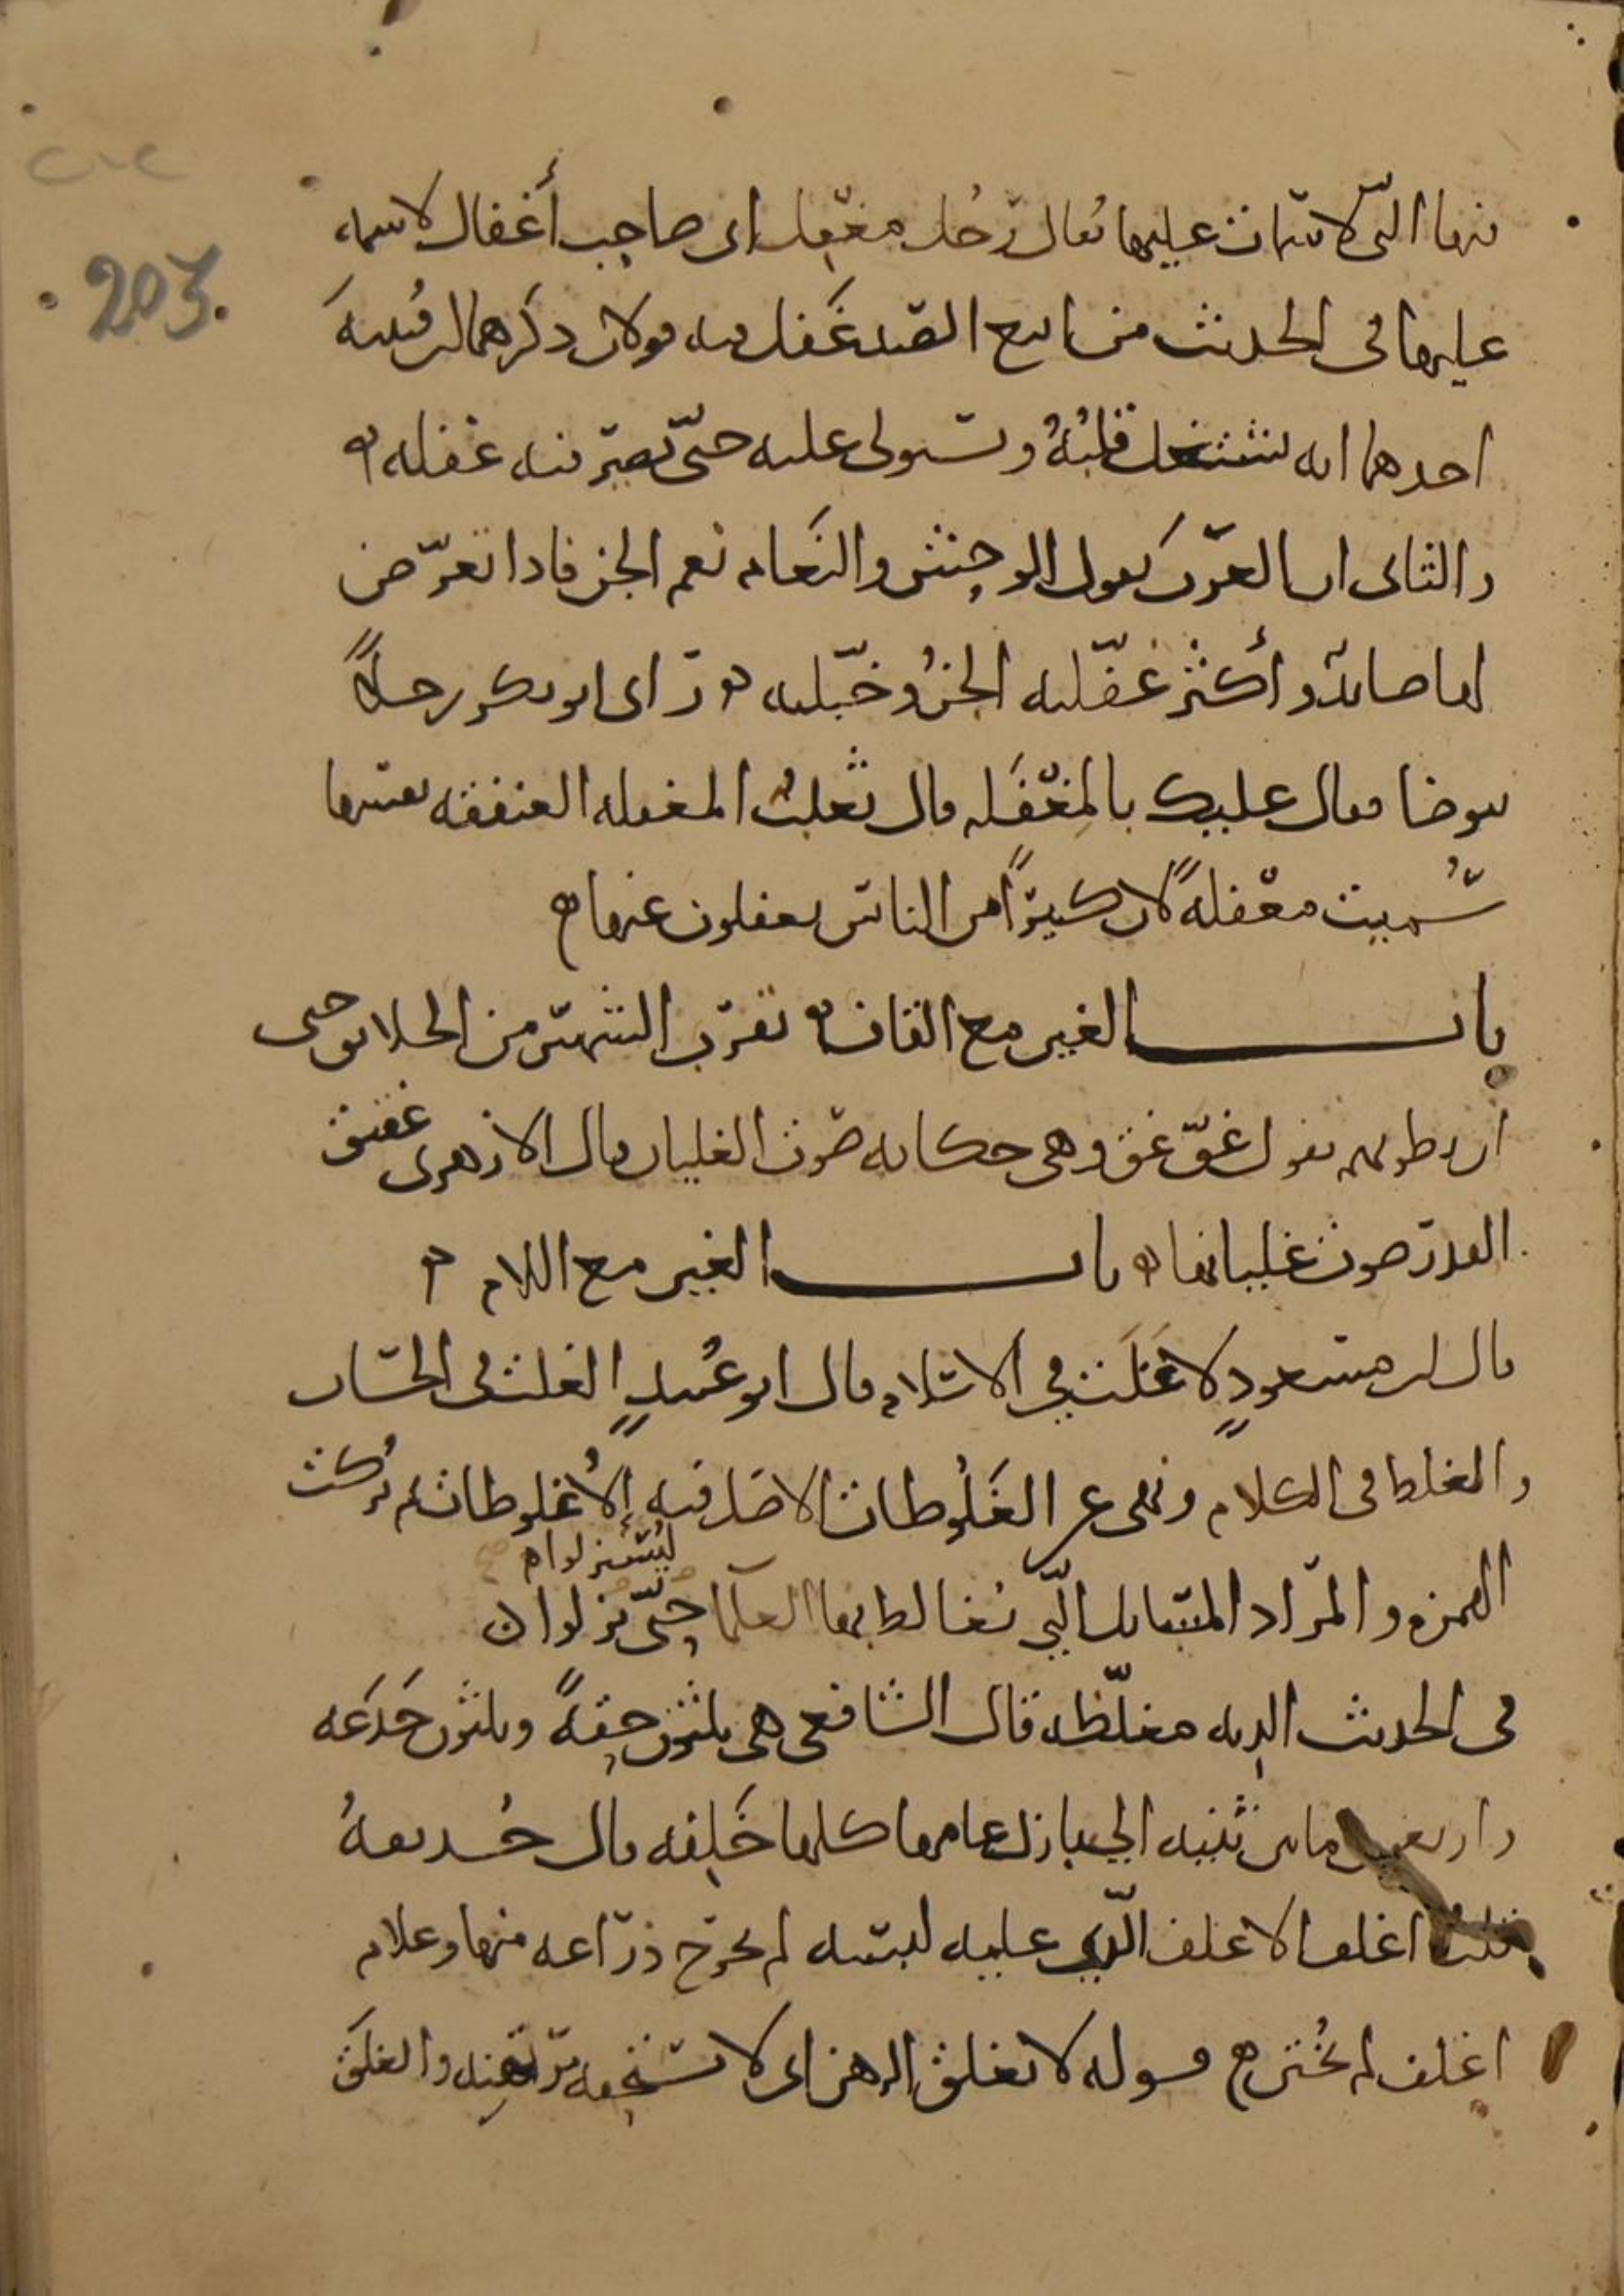 ٢٠٢
203.
منها التي لا سمات عليها يقال رجُل مغفِل اى صاحِب أغفال لا سمة
عليها فى الحديث من اتبع الصيد غَفَل فيه قولان ذكرهما ابن قُتيبةَ
احدهما انه يشتغل قلبُهُ ويستولى عليه حتّى يصير فيه غفله
والثانى ان العرَب يقول الوحش والنَعام نعم الجن فاذا تعرّض
لها صائد وأكثر غفّلته الجنُ وخبّلته ورَاى ابو بكر رجلاً
يتوضا فقال عليك بالمغفَله قال ثعلبُ المغفله العنفقه نفسها
سُّميت مغفلةً لان كثيرًا من الناس يغفلون عنها
باب الغين مع القاف تقرب الشمس من الخلايق حتى
ان بطونهم يقول غِقّ غق وهى حكايه صَوت الغليان قال الازهرى غقيق
القدر صوت غليانها باب الغين مع اللام
قال ابن مسعودٍ لا غَلَت فِى الاسلام قال ابو عُبيدٍ الغلت فى الحسَاب
والغلط فى الكلام ونهى عن الغَلُوطات الاصل فيه الأُغلوطات ثم تُركت
ليُستنزلوا
الهمزه والمرَاد المسَايل الّتِى يُغالط بها العلمآ حِتّى يزلوا
فى الحديث الدِيه مغلّظه قال الشافعى هى ثلثون حِقةً وثلثون جَذعَه
واربعون مابين ثنيه الى بازل عامها كلها خَلِفه قال حُذيفهُ
قلب اغلف الاغلف الّذِى عليه لبسه لم يخرج ذرَاعه منها وغلام
اغلف لم يُختن قوله لا يغلق الرهن اى لا يستحقه مرتهِنه والغلَق